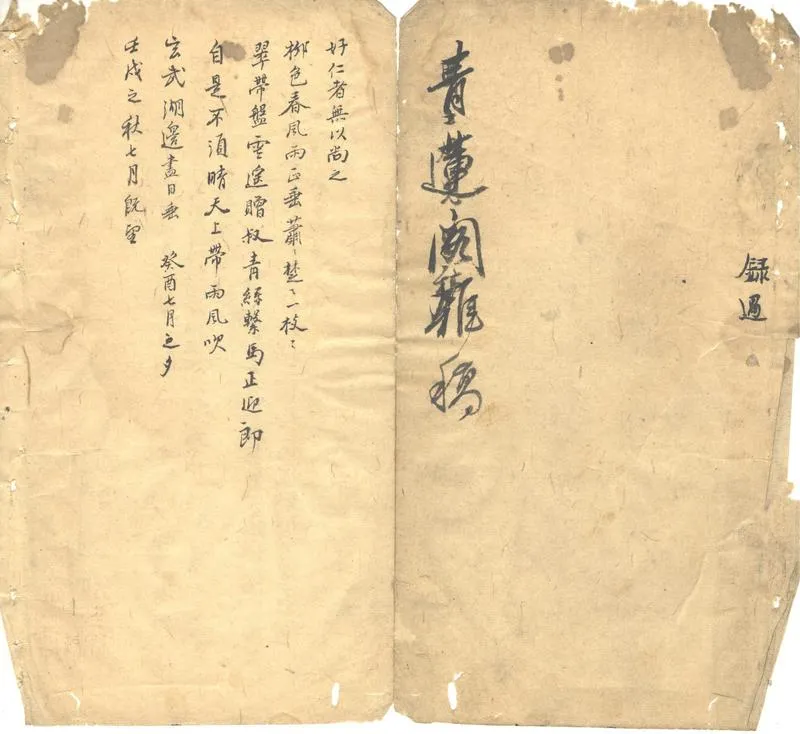 録過
青蓮閣雜稿
好仁者無以尚之
柳色春風雨正垂蕭〻楚〻一枝〻
翠帶盤雲遙贈叔青絲繫馬正迎郎
自是不須晴天上帶雨風吹
玄武湖邊盡日垂 癸酉七月之夕
壬戌之秋七月既望